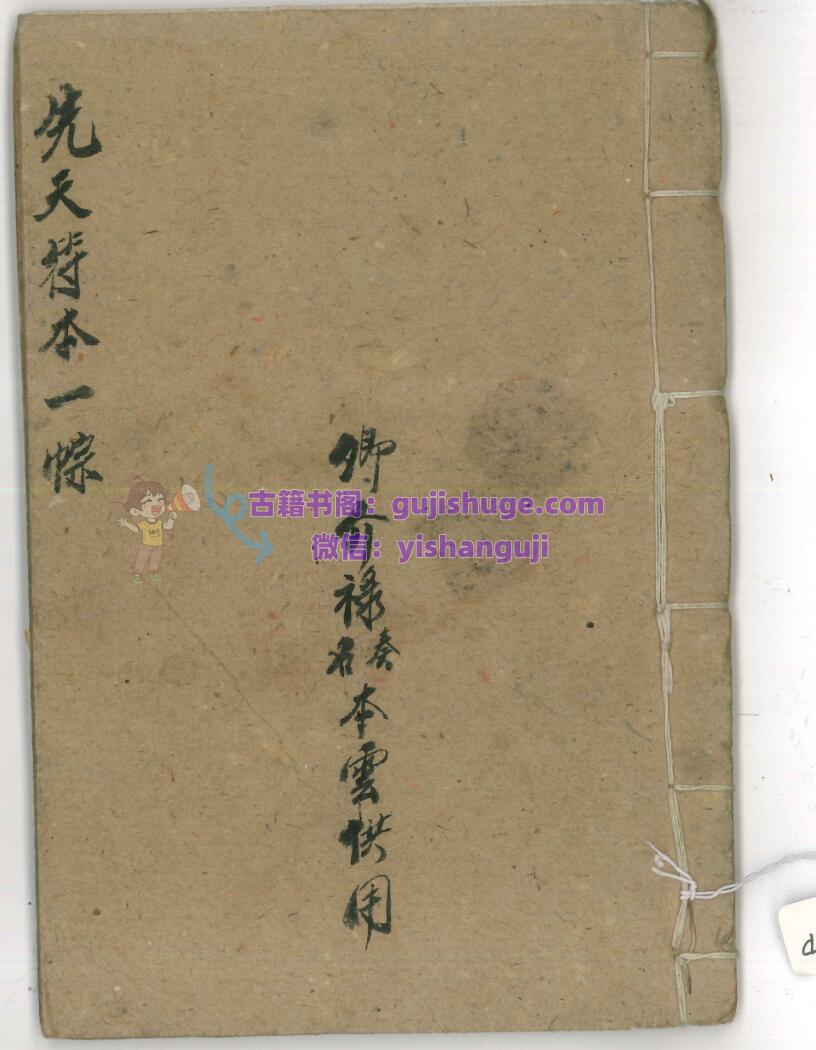 卿介禄奏名本雲供用
先天符本一悰
古籍书阁：gujishuge.com
微信：yishanguji